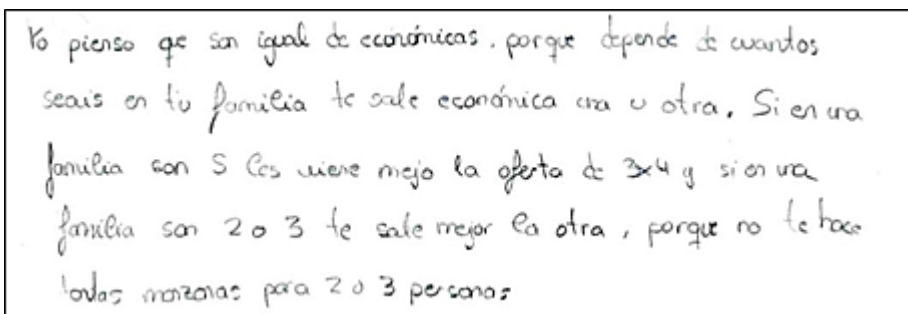 Yo pienso qe son igual de económicas, porque depende de cuantos
seais en tu familia te sale económica una u otra. Si en una
familia son 5 les viene mejo la oferta de 3x4 y si en una
familia son 2 o 3 te sale mejor la otra, porque no te hace
manzanas para 2 o 3 personas